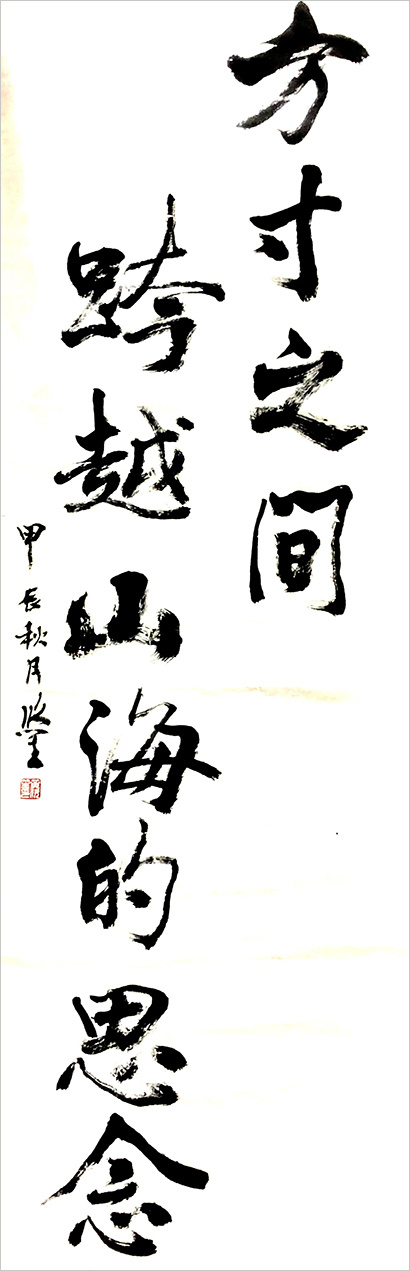 方寸之间
跨越山海的思念
甲辰秋月